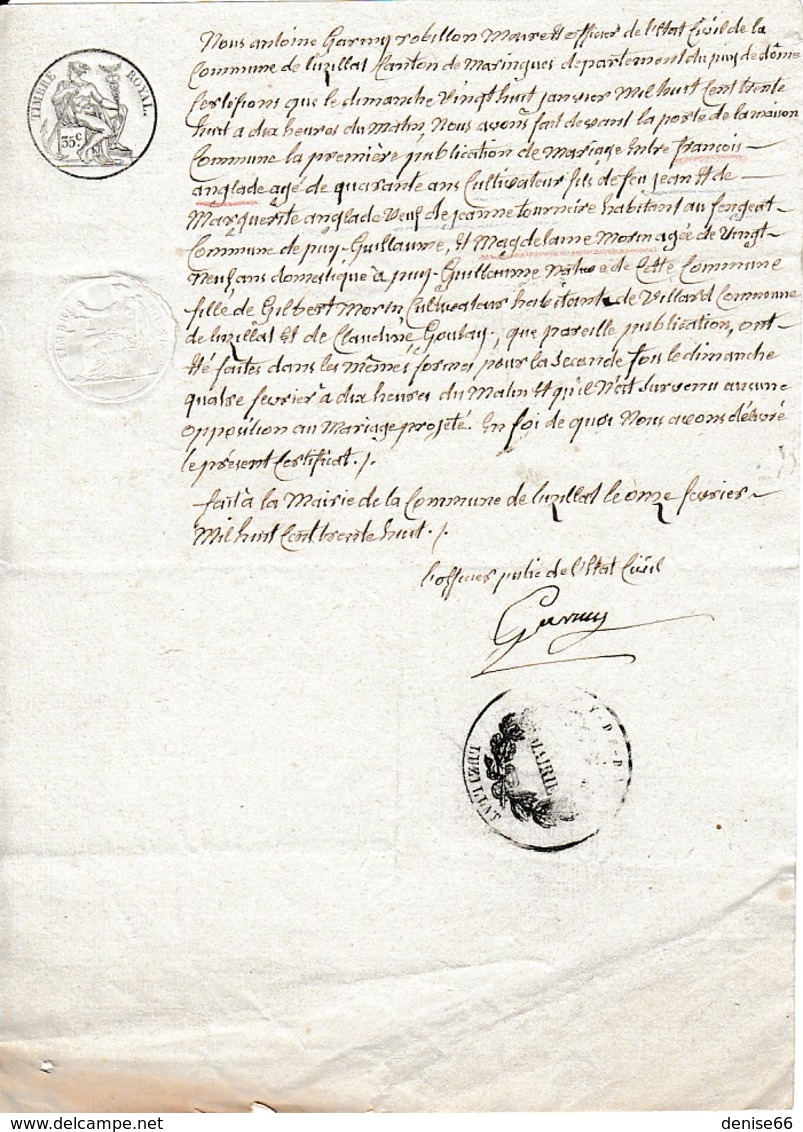 Nous antoine Garmy robillon Maire et officier de l'état Civil de la
Commune de luzillat Canton de Maringues département du puy de dôme
Certifions que le dimanche Vingt huit janvier Mil huit Cent trente
huit à dix heures du Matin, Nous avons fait devant la porte de la maison
Commune la première publication de Mariage Entre françois
anglade agé de quarante ans Cultivateur fils de feu jean Et de
Marguerite anglade Veuf de jeanne tournaire habitant au
Commune de puy-Guillaume, Et Magdelaine Morin agée de Vingt
Neuf ans domestique à puy-Guillaume Native de Cette Commune
fille de Gilbert Morin Cultivateur habitant de Villard Commune
de luzillat Et de Claudine Goulay, que pareille publication, ont
été faites dans les Mêmes formes pour la Seconde fois le dimanche
quatre février à dix heures du Matin Et qu'il N'est Survenu aucune
opposition au Mariage projeté. En foi de quoi Nous avons délivré
le présent Certificat ./.
fait à la Mairie de la Commune de luzillat le onze février
Mil huit Cent trente huit ./.
l'officier public de l'état Civil
Garmy
TIMBRE ROYAL.
35 c
MAIRIE
LUZILLAT
denise66